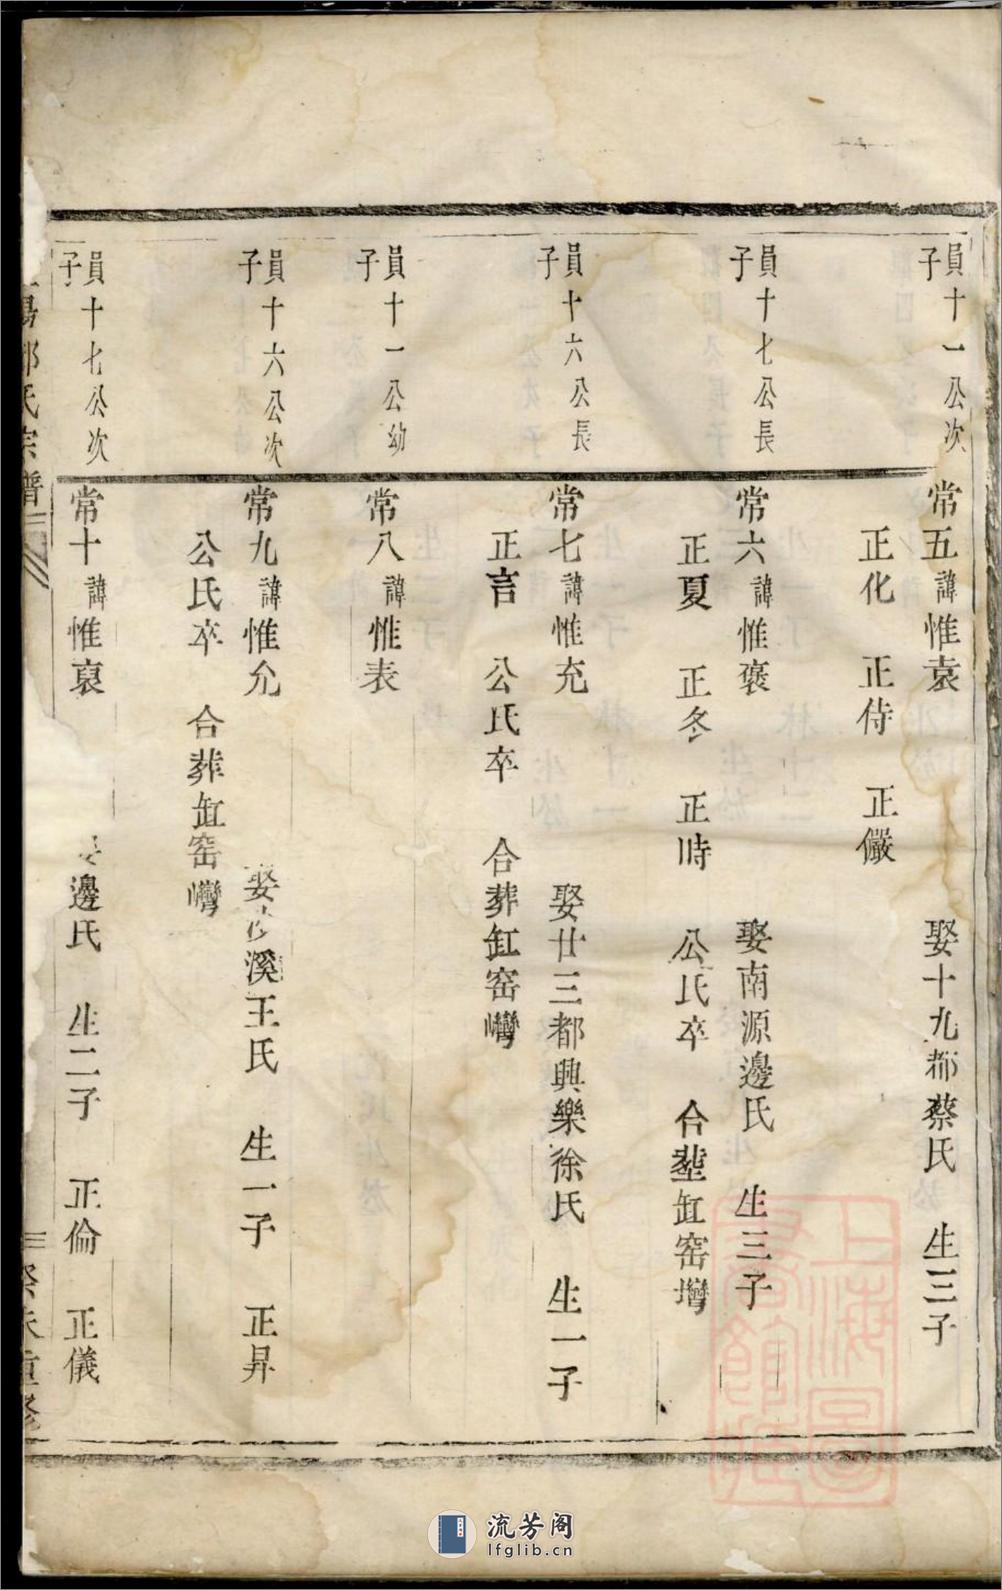 員十一公次
子
常五諱惟袁
娶十九都蔡氏
生三子
正化
正侍
正儼
員十七公長
子
常六諱惟褒
娶南源邊氏
生三子
正夏
正冬
正時
公氏卒
合塟缸窑塆
員十六公長
子
常七諱惟充
娶廿三都興樂徐氏
生一子
正言
公氏卒
合葬缸窑灣
員十一公幼
子
常八諱惟表
員十六公次
子
常九諱惟允
娶 溪王氏
生一子
正昇
公氏卒
合葬缸窑灣
員十七公次
子
常十諱惟裒
邊氏
生二子
正倫
正儀
氏宗譜
三
重修
上海圖書館藏
流芳阁
lfglib.cn